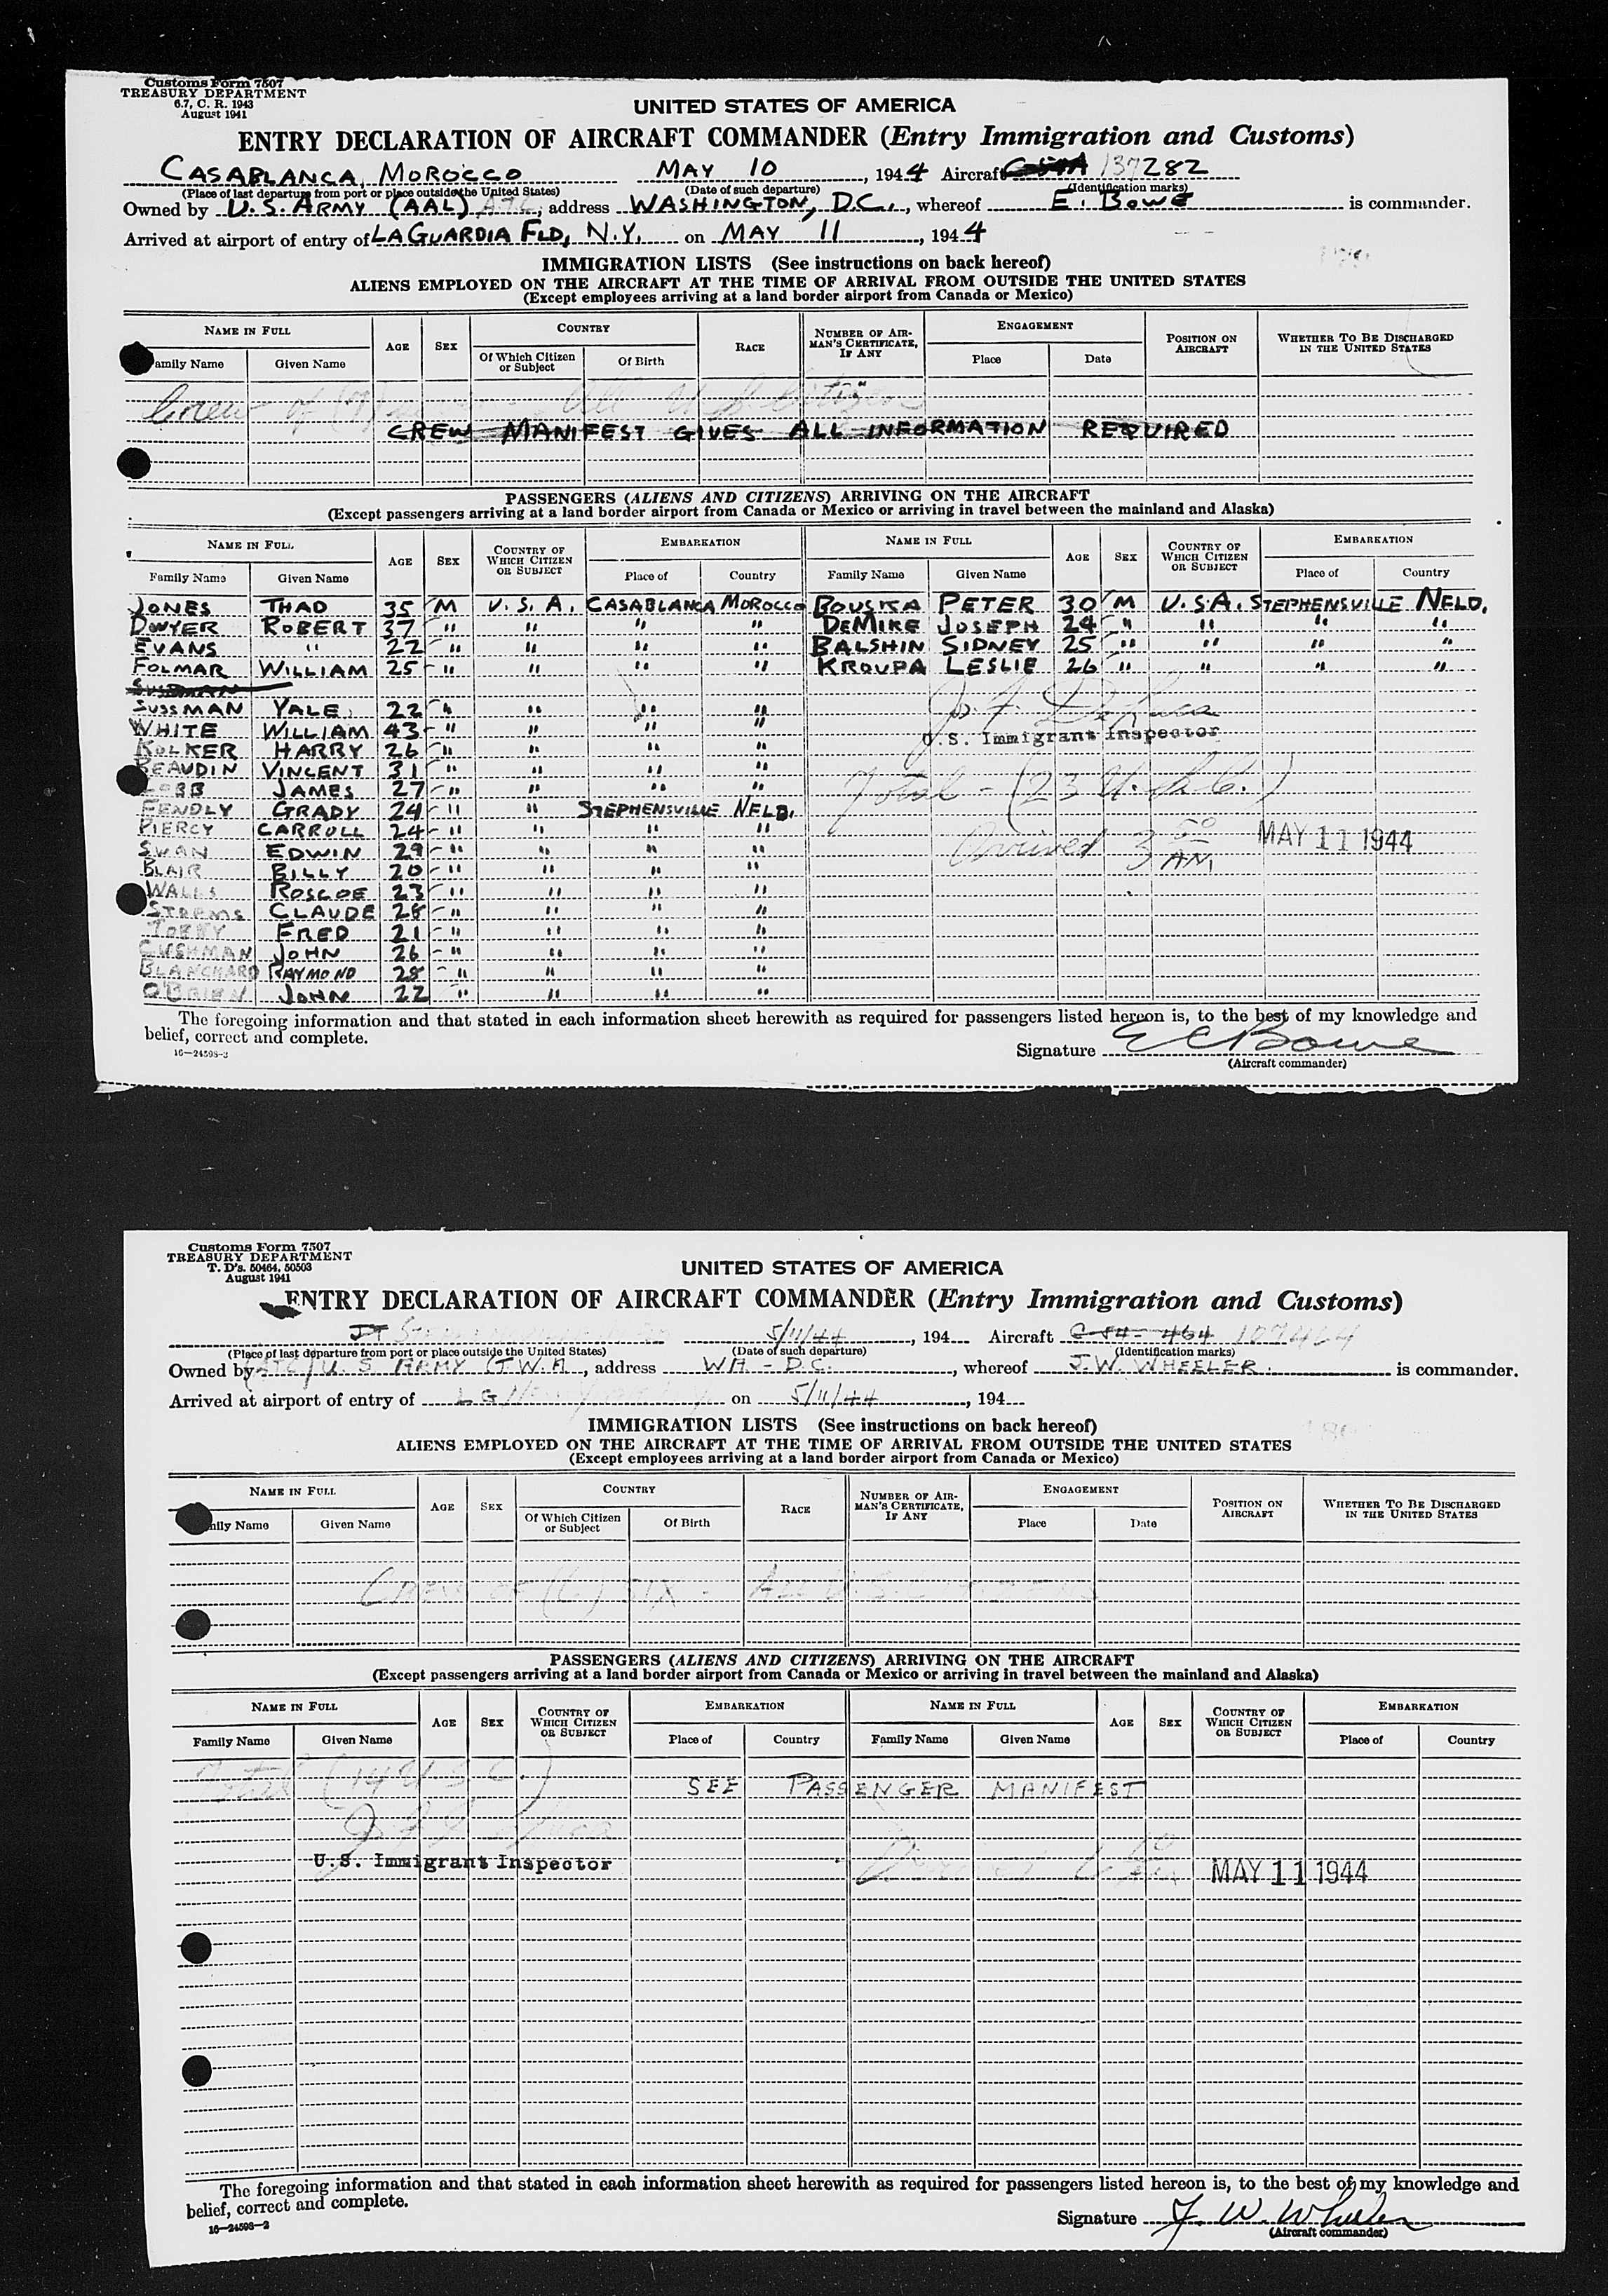 Customs Form 7507
TREASURY DEPARTMENT
6.7, C. R. 1943
August 1941
UNITED STATES OF AMERICA
ENTRY DECLARATION OF AIRCRAFT COMMANDER (Entry Immigration and Customs)
CASABLANCA, MOROCCO MAY 10, 1944 Aircraft 137282
(Place of last departure from port or place outside the United States) (Date of such departure) (Identification marks)
Owned by U.S. ARMY (AAL) ATC, address WASHINGTON, D.C., whereof E. BOWE is commander.
Arrived at airport of entry of LA GUARDIA FLD, N.Y. on MAY 11, 1944
IMMIGRATION LISTS (See instructions on back hereof)
ALIENS EMPLOYED ON THE AIRCRAFT AT THE TIME OF ARRIVAL FROM OUTSIDE THE UNITED STATES
(Except employees arriving at a land border airport from Canada or Mexico)
NAME IN FULL AGE SEX COUNTRY RACE NUMBER OF AIR-MAN'S CERTIFICATE, IF ANY ENGAGEMENT POSITION ON AIRCRAFT WHETHER TO BE DISCHARGED IN THE UNITED STATES
amily Name Given Name Of Which Citizen or Subject Of Birth Place Date
Crew of All U.S. Citizen
CREW MANIFEST GIVES ALL INFORMATION REQUIRED
PASSENGERS (ALIENS AND CITIZENS) ARRIVING ON THE AIRCRAFT
(Except passengers arriving at a land border airport from Canada or Mexico or arriving in travel between the mainland and Alaska)
NAME IN FULL AGE SEX COUNTRY OF WHICH CITIZEN OR SUBJECT EMBARKATION NAME IN FULL AGE SEX COUNTRY OF WHICH CITIZEN OR SUBJECT EMBARKATION
Family Name Given Name Place of Country Family Name Given Name Place of Country
JONES THAD 35 M U.S.A. CASABLANCA MOROCCO BOUSKA PETER 30 M U.S.A. STEPHENSVILLE NFLD.
DWYER ROBERT 37 " " " " DEMIKE JOSEPH 24 " " " "
EVANS " 22 " " " " BALSHIN SIDNEY 25 " " " "
FOLMAR WILLIAM 25 " " " " KROUPA LESLIE 26 " " " "
SUSSMAN
SUSSMAN YALE 22 " " " "
WHITE WILLIAM 43 " " " "
U.S. Immigrant Inspector
KOLKER HARRY 26 " " " "
BEAUDIN VINCENT 31 " " " "
JAMES 27 " " " "
Total - (23 U.S.C.)
FENDLY GRADY 24 " " STEPHENSVILLE NFLD.
PIERCY CARROLL 24 " " " "
SWAN EDWIN 29 " " " "
Arrived 3 50 AM MAY 11 1944
BLAIR BILLY 20 " " " "
WALLS ROSCOE 23 " " " "
CLAUDE 28 " " " "
FRED 21 " " " "
CUSHMAN JOHN 26 " " " "
BLANCHARD RAYMOND 28 " " " "
O'BRIEN JOHN 22 " " " "
The foregoing information and that stated in each information sheet herewith as required for passengers listed hereon is, to the best of my knowledge and
belief, correct and complete.
16—24598-3
Signature E C Bowe
(Aircraft commander)
Customs Form 7507
TREASURY DEPARTMENT
T. D's. 50464, 50503
August 1941
UNITED STATES OF AMERICA
ENTRY DECLARATION OF AIRCRAFT COMMANDER (Entry Immigration and Customs)
5/11/44, 194 Aircraft C 54- 464 107464
(Place of last departure from port or place outside the United States) (Date of such departure) (Identification marks)
Owned by (ATC) U. S ARMY (T.W.A, address WA - D.C., whereof J.W. WHEELER is commander.
Arrived at airport of entry of LG on 5/11/44, 194
IMMIGRATION LISTS (See instructions on back hereof)
ALIENS EMPLOYED ON THE AIRCRAFT AT THE TIME OF ARRIVAL FROM OUTSIDE THE UNITED STATES
(Except employees arriving at a land border airport from Canada or Mexico)
NAME IN FULL AGE SEX COUNTRY RACE NUMBER OF AIR-MAN'S CERTIFICATE, IF ANY ENGAGEMENT POSITION ON AIRCRAFT WHETHER TO BE DISCHARGED IN THE UNITED STATES
mily Name Given Name Of Which Citizen or Subject Of Birth Place Date
CREW OF (6) SIX - ALL U.S. CITIZENS
PASSENGERS (ALIENS AND CITIZENS) ARRIVING ON THE AIRCRAFT
(Except passengers arriving at a land border airport from Canada or Mexico or arriving in travel between the mainland and Alaska)
NAME IN FULL AGE SEX COUNTRY OF WHICH CITIZEN OR SUBJECT EMBARKATION NAME IN FULL AGE SEX COUNTRY OF WHICH CITIZEN OR SUBJECT EMBARKATION
Family Name Given Name Place of Country Family Name Given Name Place of Country
Total (14 U S C.)
SEE PASSENGER MANIFEST
U.S. Immigrant Inspector
MAY 11 1944
The foregoing information and that stated in each information sheet herewith as required for passengers listed hereon is, to the best of my knowledge and
belief, correct and complete.
16—24598-2
Signature J. W. Wheeler
(Aircraft commander)